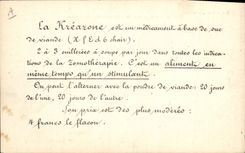 La Kréazone est un médicament à base de suc
de viande (X f l d 6 chair).
2 à 3 cuillerées à soupe par jour dans toutes les indica-
tions de la Zomothérapie. C'est un aliment en
même temps qu'un stimulant.
On peut l'alterner avec la poudre de viande: 20 jours
de l'une, 20 jours de l'autre.
Son prix est des plus modérés:
4 francs le flacon.